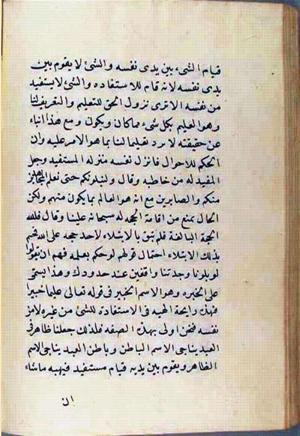 قيام الشئ بين يدى نفسه والشئ لا يقوم بين
يدى نفسه لانه قام للاستفاده والشئ لا يستفيد
من نفسه الا ترى نزول الحق للتعليم والتعريف لنا
وهو العليم بكل شئ مما كان ويكون ومع هذا انباء
عن حقيقته لا ترد تعليما لنا بما هو الامر عليه وان
الحكم للاحوال فانزل نفسه منزله المستفيد وجعل
المفيد له من خاطبه وقال ولنبلونكم حتى نعلم المجاهدين
منكم والصابرين مع انه هو العالم بما يكون منهم ولكن
الحال يمنع من اقامة الحجه له سبحانه علينا وقال فلله
الحجة البالغة فلم يبق بالابتلاء لاحد حجه على الله فحسم
بذلك الابتلاء احتمال قولهم لو حكم بعلمه فيهم ان يقولوا
لو بلوتنا وجدتنا واقفين عند حدودك وهذا يسمى
علم الخبره وهو الاسم الخبير فى قوله تعالى عليما خبيرا
فان رائحة الهيه فى الاستفادة للشئ من غيره لا من
نفسه فنحن اولى بهذه الصفه فلذلك جعلنا ظاهر
العبد يناجى الاسم الباطن وباطن العبد يناجى الاسم
الظاهر ويقوم بين يديه قيام مستفيد فيهبه ماشاء
ان